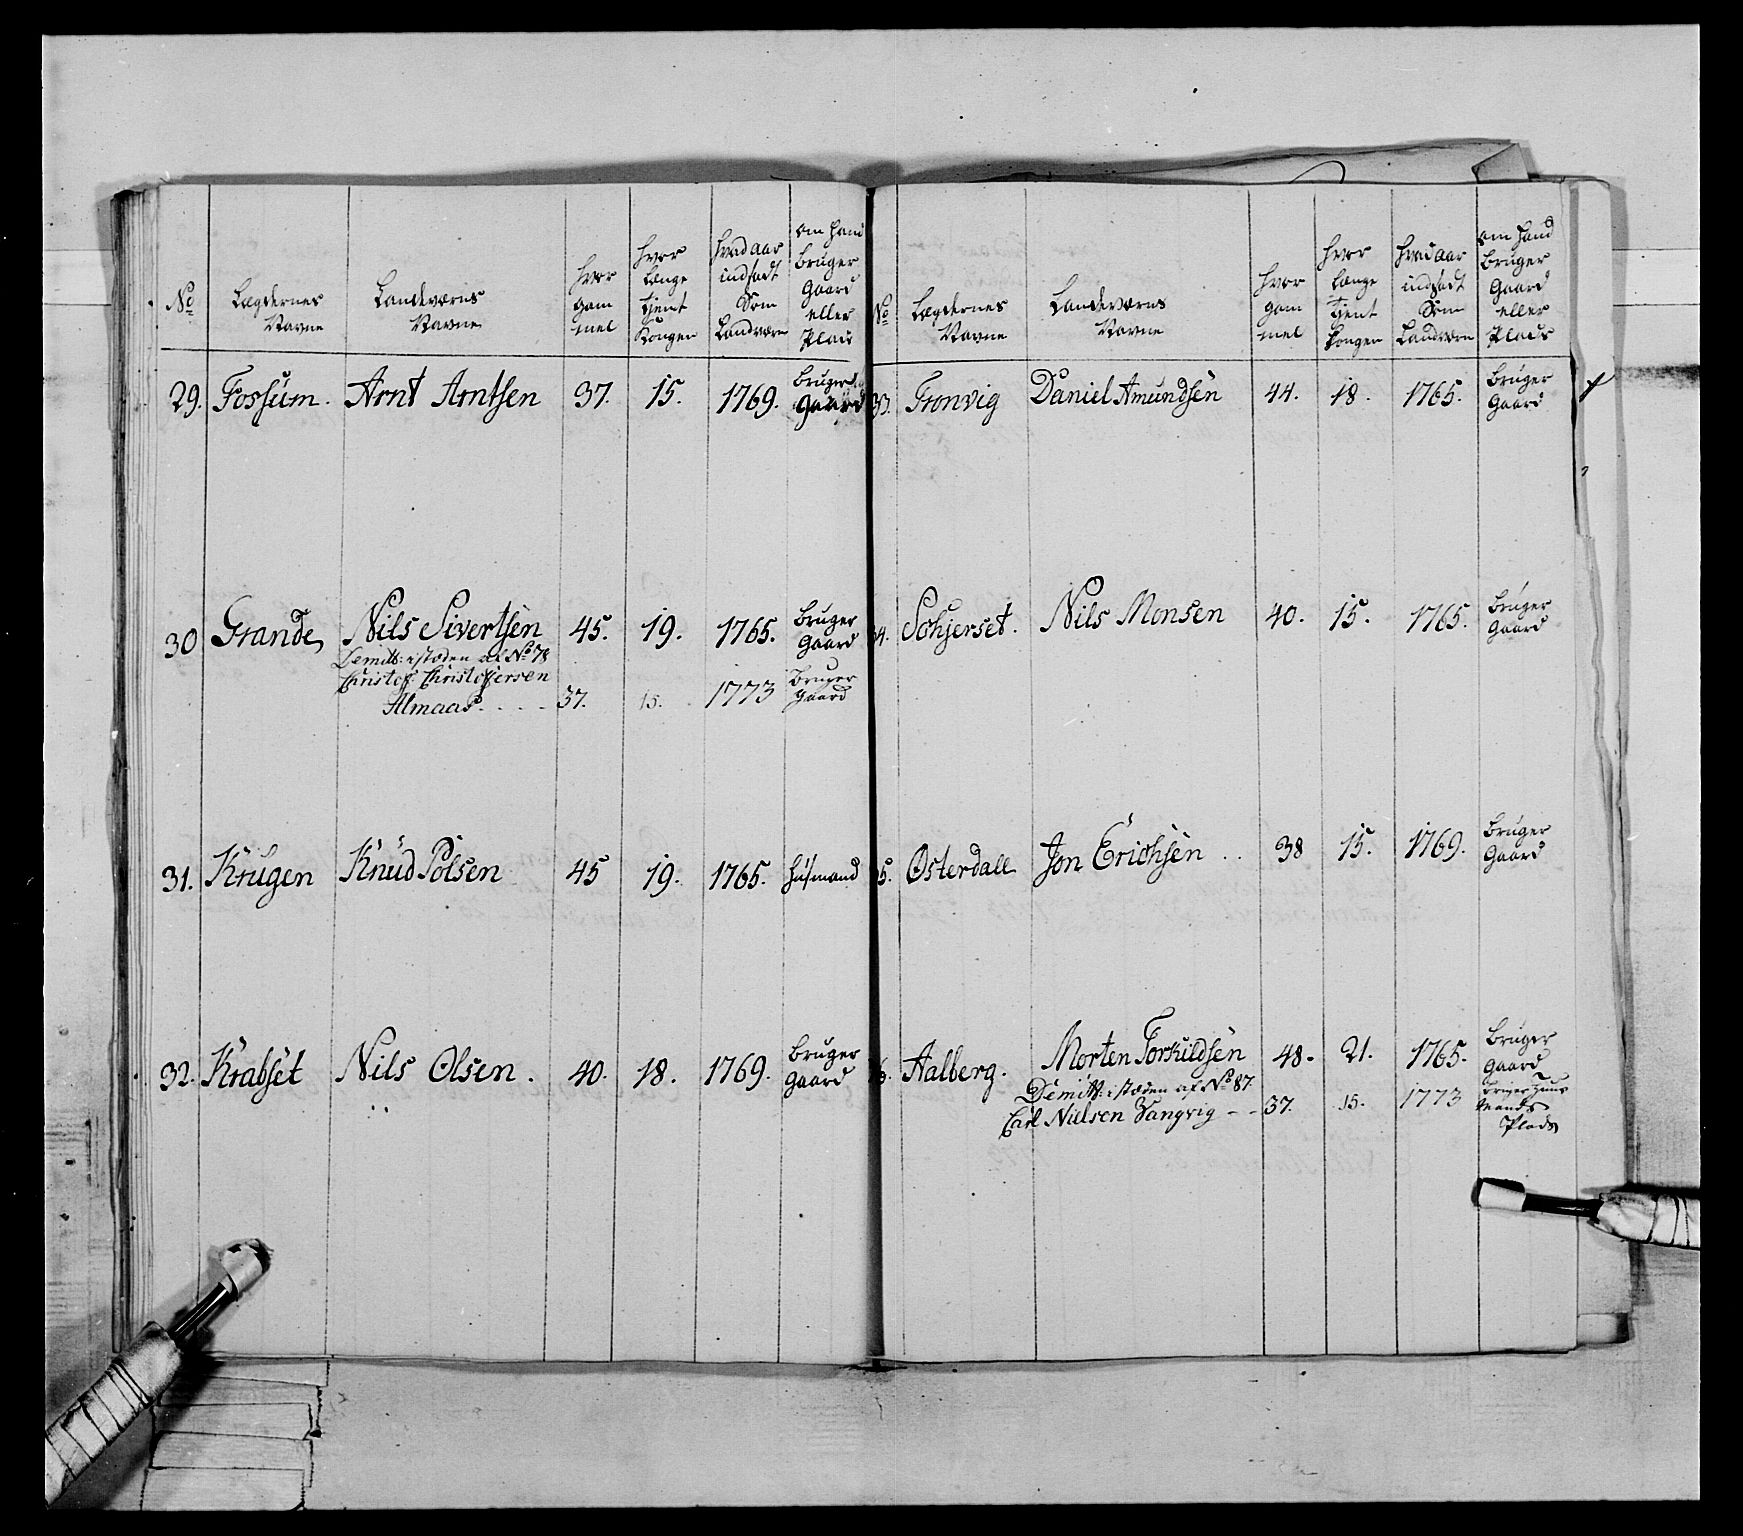 No
Lægdernes
Navne
Landeværns
Navne
hvor
gam
mel
hvor
længe
tient
Kongen
hvad aar
indsadt
Som
Landværn
om hand
bruger
Gaard
eller
Plads
29. Fossum. Arnt Arntsen 37. 15. 1769. bruger
Gaard
30 Grande Nils Sivertsen 45. 19. 1765. bruger
Gaard
Demitt: istæden af No 78
Christof: Christoffersen
Almaas. . . . - 37. 15. 1773 bruger
gaard
31. Krugen Knud Polsen 45 19. 1765. Husmand
32. Krabset Nils Olsen. 40. 18. 1769. bruger
gaard
No
Lægdernes
Navne
Landeværns
Navne
hvor
gam
mel
hvor
længe
tient
Kongen
hvad aar
indsadt
Som
Landværn
om hand
bruger
Gaard
eller
Plads
33. Tronvig Daniel Amundsen 44. 18. 1765. bruger
Gaard
34. Solhjerset. Nils Monsen 40. 15. 1765. bruger
gaard
35. Østerdall Jon Erichsen . . 38 15. 1769. bruger
Gaard
36. Aalberg. Morten Torkildsen 48. 21. 1765. bruger
gaard
Demitt: istæden af No 87.
Carl Nielsen Vangvig - - 37. 15. 1773 bruger Huus
Mands
Plads